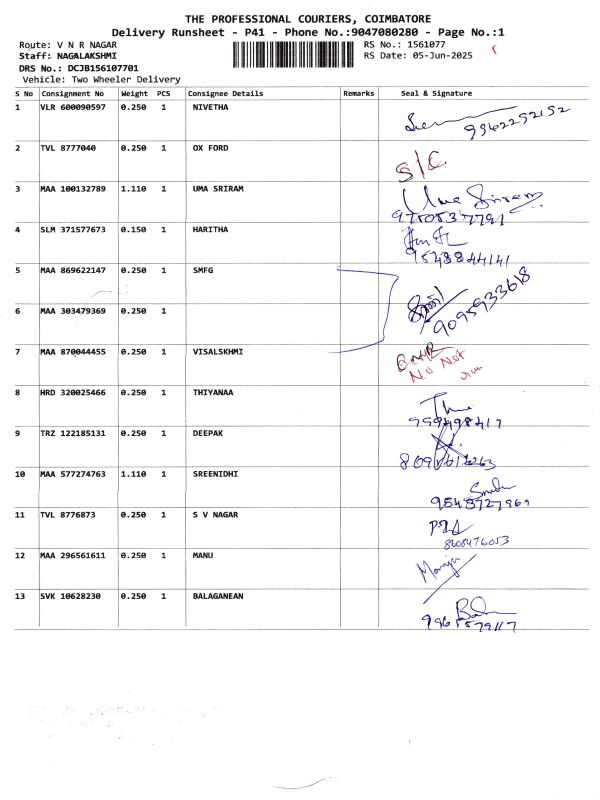 THE PROFESSIONAL COURIERS, COIMBATORE
Delivery Runsheet - P41 - Phone No.:9047080280 - Page No.:1
Route: V N R NAGAR
RS No.: 1561077
Staff: NAGALAKSHMI
RS Date: 05-Jun-2025
DRS No.: DCJB156107701
Vehicle: Two Wheeler Delivery
S No Consignment No Weight PCS Consignee Details Remarks Seal & Signature
1 VLR 600090597 0.250 1 NIVETHA
9962252152
2 TVL 8777040 0.250 1 OX FORD
S/C
3 MAA 100132789 1.110 1 UMA SRIRAM
Uma Sriram
9750537791
4 SLM 371577673 0.150 1 HARITHA
9548844141
5 MAA 869622147 0.250 1 SMFG
6 MAA 303479369 0.250 1
9095933618
7 MAA 870044455 0.250 1 VISALSKHMI
No Not
8 HRD 320025466 0.250 1 THIYANAA
999498417
9 TRZ 122185131 0.250 1 DEEPAK
10 MAA 577274763 1.110 1 SREENIDHI
9543727969
11 TVL 8776873 0.250 1 S V NAGAR
8608476053
12 MAA 296561611 0.250 1 MANU
13 SVK 10628230 0.250 1 BALAGANEAN
9965579117